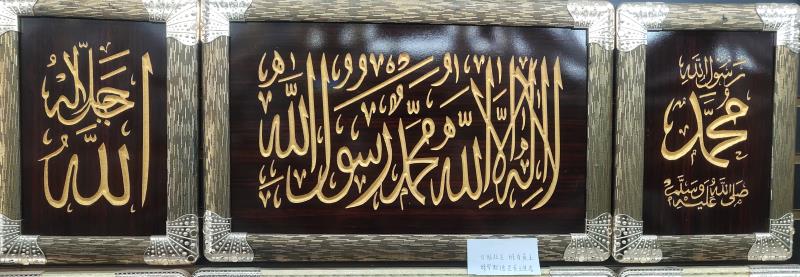 رسول الله
محمد
صلى الله عليه وسلم
لا إله إلا الله محمد رسول الله
جل جلاله
الله